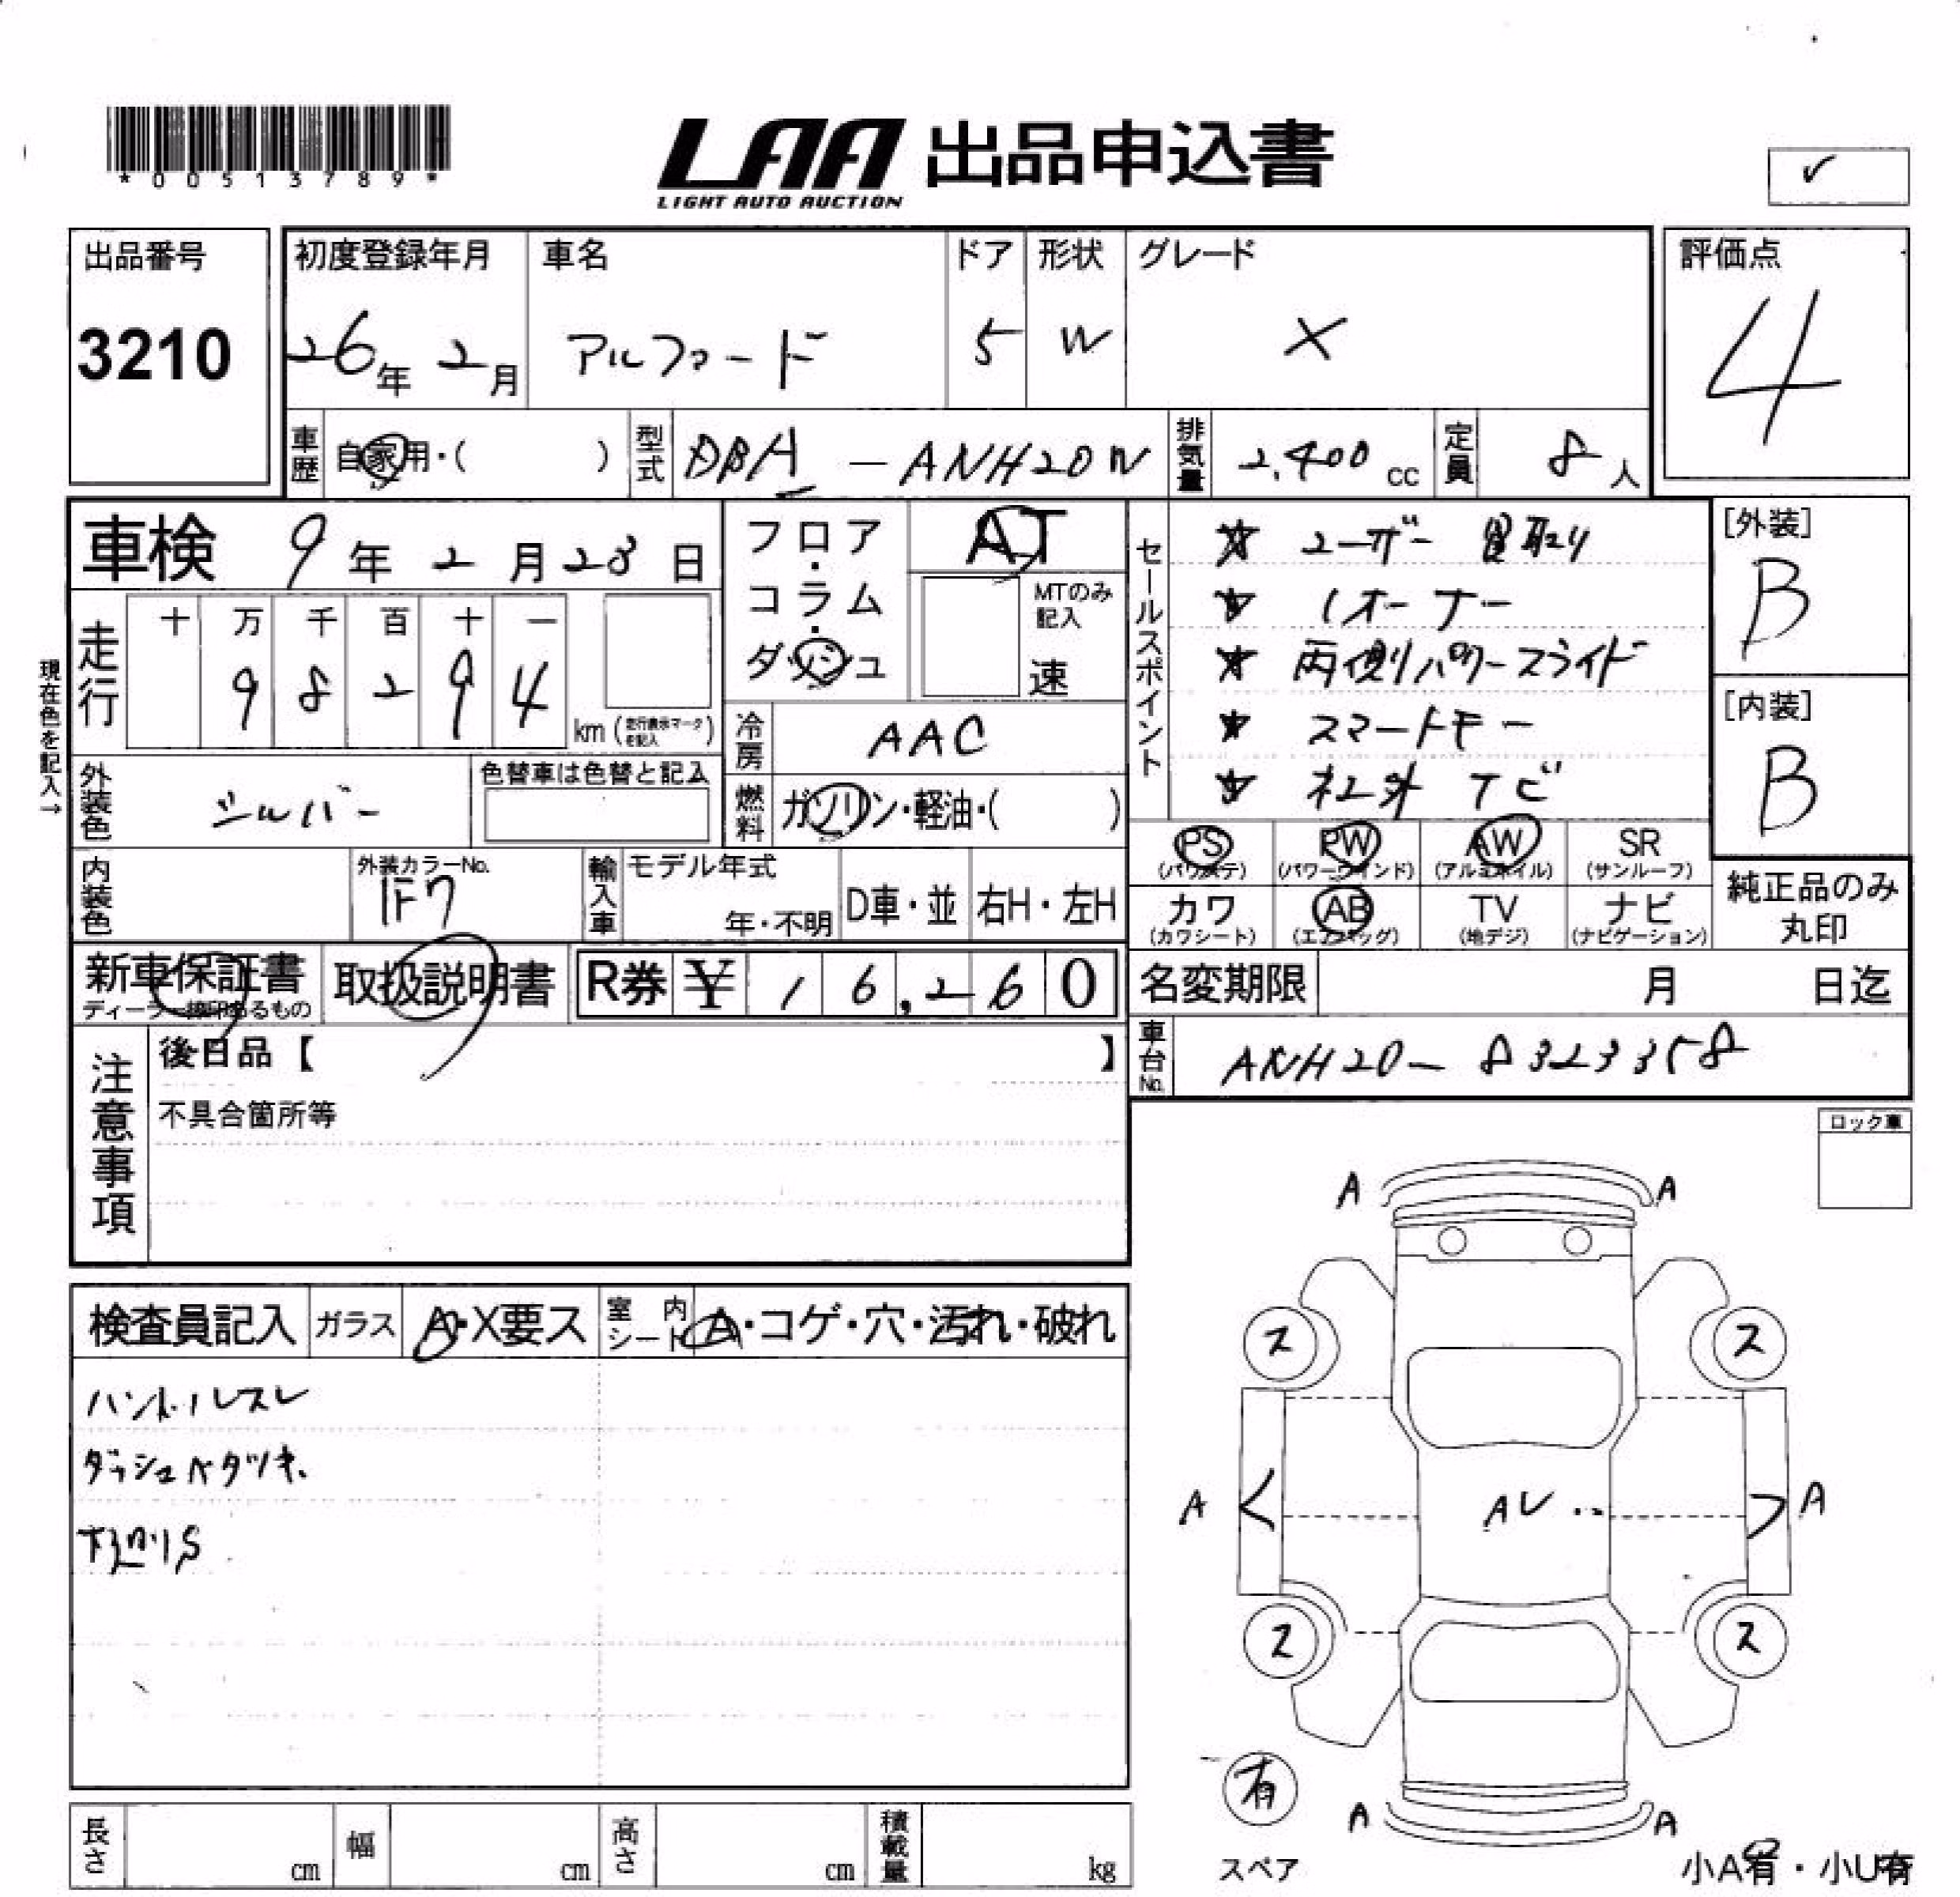 *00513789*
LAA 出品申込書
LIGHT AUTO AUCTION
✓
出品番号
3210
初度登録年月
26年 2月
車名
アルファード
ドア
5
形状
W
グレード
X
評価点
4
車歴 自家用・( )
型式 DBA-ANH20W
排気量 2,400 cc
定員 8人
現在色を記入→
車検 9年 2月 28日
走行
十 万 千 百 十 一
9 8 2 9 4
km (走行表示マークを記入)
フロア・コラム・ダッシュ
AT
MTのみ記入
速
冷房 AAC
燃料 ガソリン・軽油・( )
セールスポイント
★ ユーザー買取り
★ 1オーナー
★ 両側パワースライド
★ スマートキー
★ 社外ナビ
[外装]
B
[内装]
B
外装色 シルバー
色替車は色替と記入
内装色
外装カラーNo.
1F7
輸入車
モデル年式
年・不明
D車・並
右H・左H
PS (パワステ)
PW (パワーウインド)
AW (アルミホイル)
SR (サンルーフ)
カワ (カワシート)
AB (エアバッグ)
TV (地デジ)
ナビ (ナビゲーション)
純正品のみ丸印
新車保証書
ディーラー捺印あるもの
取扱説明書
R券 ¥ 16,260
名変期限 月 日迄
車台No. ANH20-8323358
注意事項
後日品【 】
不具合箇所等
ロック車
検査員記入
ガラス A・X要ス
室内シート A・コゲ・穴・汚れ・破れ
ハンドルスレ
ダッシュベタツキ
下廻りS
A A
ス ス
A AU A
ス ス
A A
有
スペア
小A有・小U有
長さ cm
幅 cm
高さ cm
積載量 kg